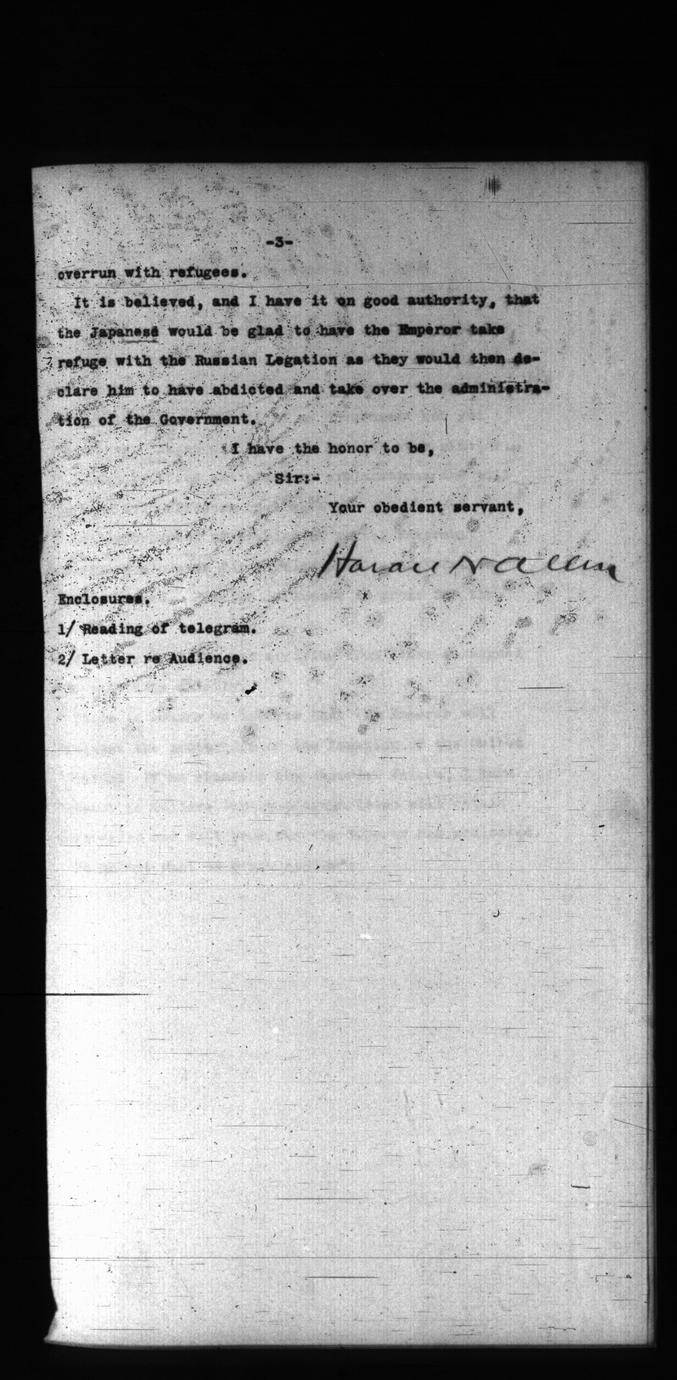 -3-
overrun with refugees.
It is believed, and I have it on good authority, that
the Japanese would be glad to have the Emperor take
refuge with the Russian Legation as they would then de-
clare him to have abdicted and take over the administra-
tion of the Government.
I have the honor to be,
Sir:-
Your obedient servant,
Horace N Allen
Enclosures.
1/ Reading of telegram.
2/ Letter re Audience.